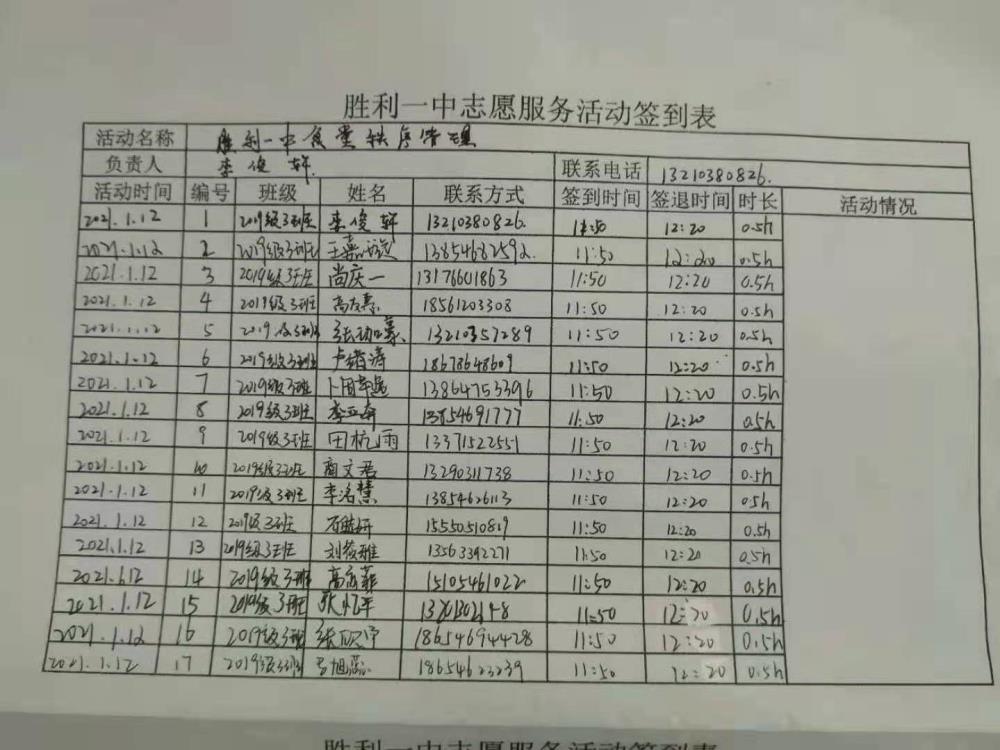 胜利一中志愿服务活动签到表
活动名称 胜利一中食堂秩序管理
负责人 李俊轩 联系电话 13210380826.
活动时间 编号 班级 姓名 联系方式 签到时间 签退时间 时长 活动情况
2021.1.12 1 2019级3班 李俊轩 13210380826. 11:50 12:20 0.5h
2021.1.12 2 2019级3班 王嘉 13854682592. 11:50 12:20 0.5h
2021.1.12 3 2019级3班 尚庆一 13176601863 11:50 12:20 0.5h
2021.1.12 4 2019级3班 18561203308 11:50 12:20 0.5h
2021.1.12 5 2019级3班 13210357289 11:50 12:20 0.5h
2021.1.12 6 2019级3班 18678648609 11:50 12:20 0.5h
2021.1.12 7 2019级3班 13864753396 11:50 12:20 0.5h
2021.1.12 8 2019级3班 13854691777 11:50 12:20 0.5h
2021.1.12 9 2019级3班 田杭雨 13371522551 11:50 12:20 0.5h
2021.1.12 10 2019级3班 商文君 13290311738 11:50 12:20 0.5h
2021.1.12 11 2019级3班 李洺慧 13854626113 11:50 12:20 0.5h
2021.1.12 12 2019级3班 15550510819 11:50 12:20 0.5h
2021.1.12 13 2019级3班 刘筱雅 13563392271 11:50 12:20 0.5h
2021.1.12 14 2019级3班 15105461022 11:50 12:20 0.5h
2021.1.12 15 2019级3班 11:50 12:20 0.5h
2021.1.12 16 2019级3班 18654694428 11:50 12:20 0.5h
2021.1.12 17 2019级3班 18654623239 11:50 12:20 0.5h
胜利一中志愿服务活动签到表